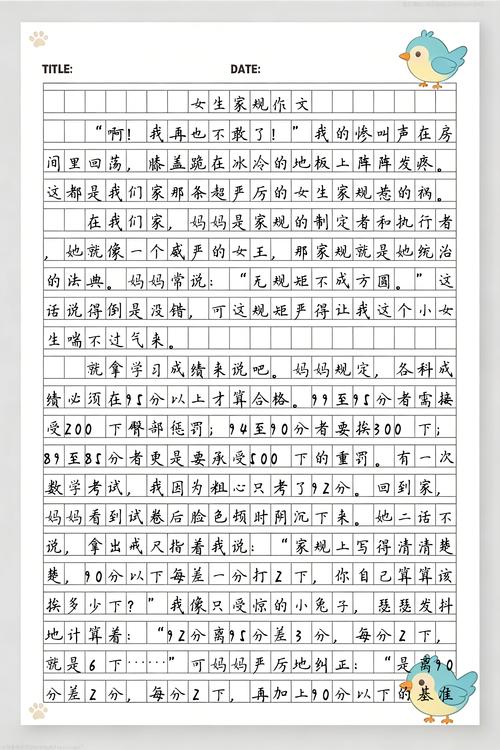 TITLE: DATE:
女生家规作文
“啊！我再也不敢了！”我的惨叫声在房
间里回荡，膝盖跪在冰冷的地板上阵阵发疼。
这都是我们家那条超严厉的女生家规惹的祸。
在我们家，妈妈是家规的制定者和执行者
，她就像一个威严的女王，那家规就是她统治
的法典。妈妈常说：“无规矩不成方圆。”这
话说得倒是没错，可这规矩严得让我这个小女
生喘不过气来。
就拿学习成绩来说吧。妈妈规定，各科成
绩必须在95分以上才算合格。99至95分者需接
受200 下臀部惩罚；94至90分者要挨300 下；
89至85分者更是要承受500 下的重罚。有一次
数学考试，我因为粗心只考了92分。回到家，
妈妈看到试卷后脸色顿时阴沉下来。她二话不
说，拿出戒尺指着我说：“家规上写得清清楚
楚，90分以下每差一分打2下，你自己算算该
挨多少下？”我像只受惊的小兔子，瑟瑟发抖
地计算着：“92分离95分差3分，每分2下，
就是6下……”可妈妈严厉地纠正：“是离90
分差2分，每分2下，再加上90分以下的基准